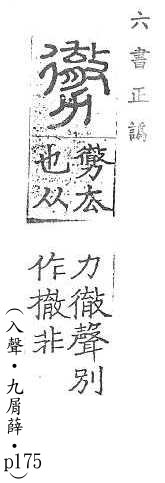 六書正譌
勶
勶厺
也从
力徹聲別
作撤非
（入聲・九屑薛・p175）